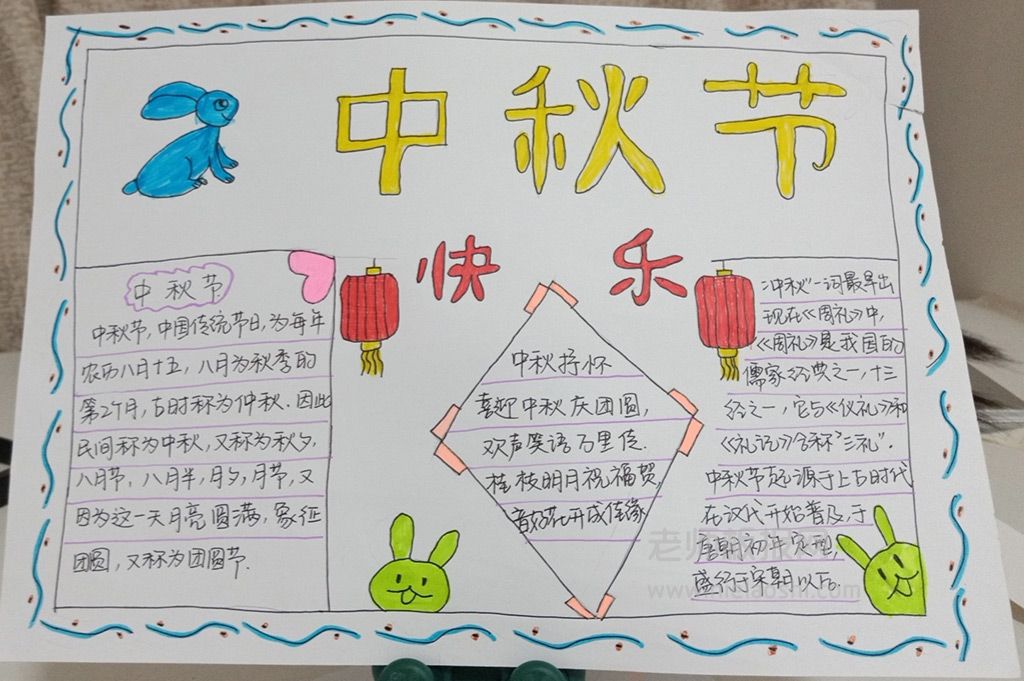 中秋节
快乐
中秋节
中秋节,中国传统节日,为每年
农历八月十五,八月为秋季的
第2个月,古时称为仲秋.因此
民间称为中秋,又称为秋夕,
八月节,八月半,月夕,月节,又
因为这一天月亮圆满,象征
团圆,又称为团圆节.
中秋抒怀
喜迎中秋庆团圆,
欢声笑语万里传.
桂枝明月祝福贺,
音好花开成佳缘
"中秋"一词最早出
现在《周礼》中,
《周礼》是我国的
儒家经典之一,十三
经之一,它与《仪礼》和
《礼记》合称"三礼".
中秋节起源于上古时代
在汉代开始普及,于
唐朝初年定型,
盛行于宋朝以后.